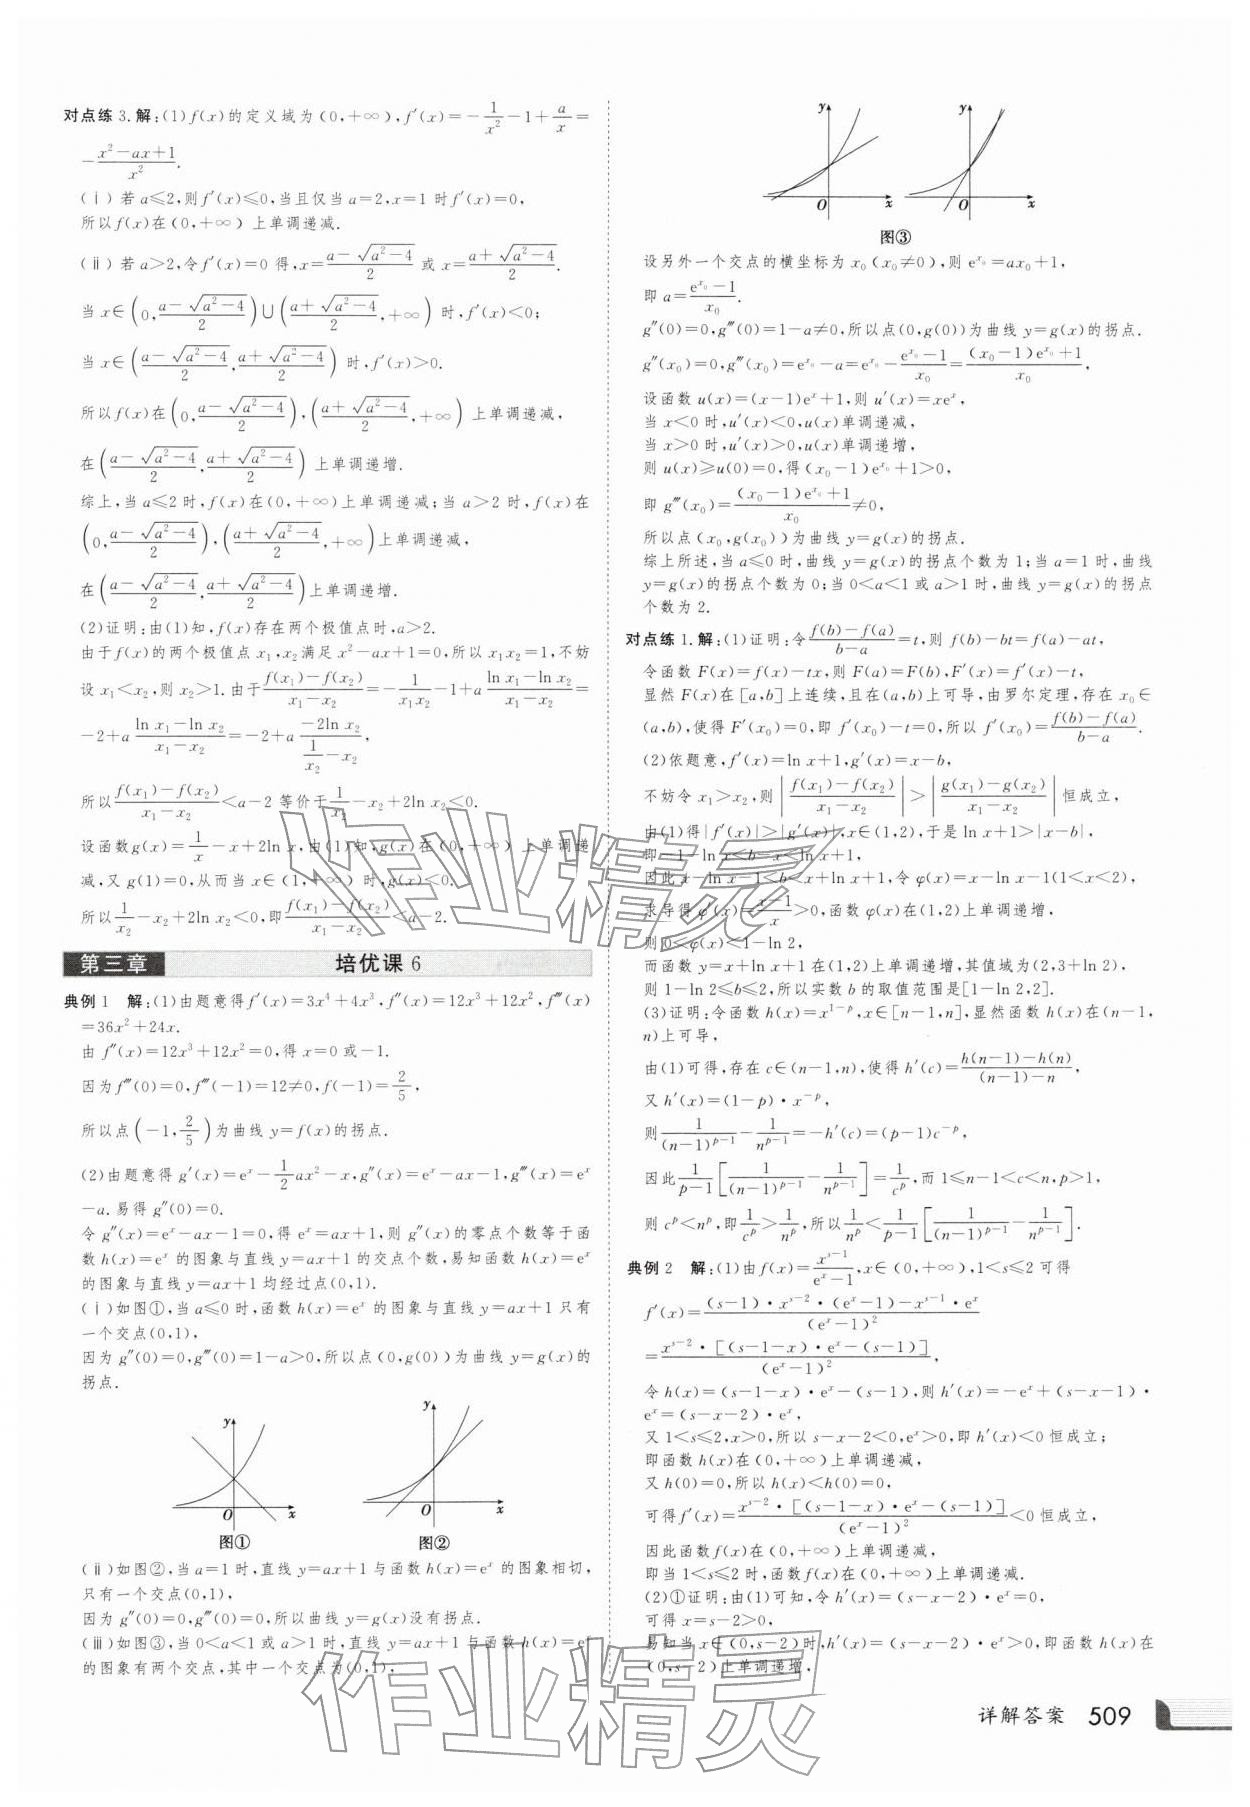 对点练3.解:(1)f(x)的定义域为(0,+∞),f′(x)=-1/x²-1+a/x=
-(x²-ax+1)/x².
(ⅰ)若a≤2,则f′(x)≤0,当且仅当a=2,x=1时f′(x)=0,
所以f(x)在(0,+∞)上单调递减.
(ⅱ)若a>2,令f′(x)=0得,x=(a-√(a²-4))/2 或x=(a+√(a²-4))/2.
当x∈(0,(a-√(a²-4))/2)∪((a+√(a²-4))/2,+∞)时,f′(x)<0;
当x∈((a-√(a²-4))/2,(a+√(a²-4))/2)时,f′(x)>0.
所以f(x)在(0,(a-√(a²-4))/2),((a+√(a²-4))/2,+∞)上单调递减,
在((a-√(a²-4))/2,(a+√(a²-4))/2)上单调递增.
综上,当a≤2时,f(x)在(0,+∞)上单调递减;当a>2时,f(x)在
(0,(a-√(a²-4))/2),((a+√(a²-4))/2,+∞)上单调递减,
在((a-√(a²-4))/2,(a+√(a²-4))/2)上单调递增.
(2)证明:由(1)知,f(x)存在两个极值点时,a>2.
由于f(x)的两个极值点x₁,x₂满足x²-ax+1=0,所以x₁x₂=1,不妨
设x₁<x₂,则x₂>1.由于(f(x₁)-f(x₂))/(x₁-x₂)=-1/(x₁x₂)-1+a(ln x₁-ln x₂)/(x₁-x₂)=
-2+a(ln x₁-ln x₂)/(x₁-x₂)=-2+a(-2ln x₂)/(1/x₂-x₂),
所以(f(x₁)-f(x₂))/(x₁-x₂)<a-2等价于1/x₂-x₂+2ln x₂<0.
设函数g(x)=1/x-x+2ln x,由(1)知,g(x)在(0,+∞)上单调递
减,又g(1)=0,从而当x∈(1,+∞)时,g(x)<0.
所以1/x₂-x₂+2ln x₂<0,即(f(x₁)-f(x₂))/(x₁-x₂)<a-2.
第三章 培优课6
典例1 解:(1)由题意得f′(x)=3x⁴+4x³,f″(x)=12x³+12x²,f‴(x)
=36x²+24x.
由f″(x)=12x³+12x²=0,得x=0或-1.
因为f‴(0)=0,f‴(-1)=12≠0,f(-1)=2/5,
所以点(-1,2/5)为曲线y=f(x)的拐点.
(2)由题意得g′(x)=eˣ-1/2ax²-x,g″(x)=eˣ-ax-1,g‴(x)=eˣ
-a.易得g″(0)=0.
令g″(x)=eˣ-ax-1=0,得eˣ=ax+1,则g″(x)的零点个数等于函
数h(x)=eˣ的图象与直线y=ax+1的交点个数,易知函数h(x)=eˣ
的图象与直线y=ax+1均经过点(0,1).
(ⅰ)如图①,当a≤0时,函数h(x)=eˣ的图象与直线y=ax+1只有
一个交点(0,1),
因为g″(0)=0,g‴(0)=1-a>0,所以点(0,g(0))为曲线y=g(x)的
拐点.
y O x y O x
图① 图②
(ⅱ)如图②,当a=1时,直线y=ax+1与函数h(x)=eˣ的图象相切,
只有一个交点(0,1),
因为g″(0)=0,g‴(0)=0,所以曲线y=g(x)没有拐点.
(ⅲ)如图③,当0<a<1或a>1时,直线y=ax+1与函数h(x)=eˣ
的图象有两个交点,其中一个交点为(0,1),
y O x y O x
图③
设另外一个交点的横坐标为x₀(x₀≠0),则e^x₀=ax₀+1,
即a=(e^x₀-1)/x₀.
g″(0)=0,g‴(0)=1-a≠0,所以点(0,g(0))为曲线y=g(x)的拐点.
g″(x₀)=0,g‴(x₀)=e^x₀-a=e^x₀-(e^x₀-1)/x₀=((x₀-1)e^x₀+1)/x₀,
设函数u(x)=(x-1)eˣ+1,则u′(x)=xeˣ,
当x<0时,u′(x)<0,u(x)单调递减,
当x>0时,u′(x)>0,u(x)单调递增,
则u(x)≥u(0)=0,得(x₀-1)e^x₀+1>0,
即g‴(x₀)=((x₀-1)e^x₀+1)/x₀≠0,
所以点(x₀,g(x₀))为曲线y=g(x)的拐点.
综上所述,当a≤0时,曲线y=g(x)的拐点个数为1;当a=1时,曲线
y=g(x)的拐点个数为0;当0<a<1或a>1时,曲线y=g(x)的拐点
个数为2.
对点练1.解:(1)证明:令(f(b)-f(a))/(b-a)=t,则f(b)-bt=f(a)-at,
令函数F(x)=f(x)-tx,则F(a)=F(b),F′(x)=f′(x)-t,
显然F(x)在[a,b]上连续,且在(a,b)上可导,由罗尔定理,存在x₀∈
(a,b),使得F′(x₀)=0,即f′(x₀)-t=0,所以f′(x₀)=(f(b)-f(a))/(b-a).
(2)依题意,f′(x)=ln x+1,g′(x)=x-b,
不妨令x₁>x₂,则|(f(x₁)-f(x₂))/(x₁-x₂)|>|(g(x₁)-g(x₂))/(x₁-x₂)|恒成立,
由(1)得|f′(x)|>|g′(x)|,x∈(1,2),于是ln x+1>|x-b|,
即-1-ln x<b-x<ln x+1,
因此x-ln x-1<b<x+ln x+1,令φ(x)=x-ln x-1(1<x<2),
求导得φ′(x)=(x-1)/x>0,函数φ(x)在(1,2)上单调递增,
则0<φ(x)<1-ln 2,
而函数y=x+ln x+1在(1,2)上单调递增,其值域为(2,3+ln 2),
则1-ln 2≤b≤2,所以实数b的取值范围是[1-ln 2,2].
(3)证明:令函数h(x)=x^(1-p),x∈[n-1,n],显然函数h(x)在(n-1,
n)上可导,
由(1)可得,存在c∈(n-1,n),使得h′(c)=(h(n-1)-h(n))/((n-1)-n),
又h′(x)=(1-p)·x^(-p),
则1/(n-1)^(p-1)-1/n^(p-1)=-h′(c)=(p-1)c^(-p),
因此1/(p-1)[1/(n-1)^(p-1)-1/n^(p-1)]=1/c^p,而1≤n-1<c<n,p>1,
则c^p<n^p,即1/c^p>1/n^p,所以1/n^p<1/(p-1)[1/(n-1)^(p-1)-1/n^(p-1)].
典例2 解:(1)由f(x)=x^(s-1)/(eˣ-1),x∈(0,+∞),1<s≤2可得
f′(x)=((s-1)·x^(s-2)·(eˣ-1)-x^(s-1)·eˣ)/(eˣ-1)²
=x^(s-2)·[(s-1-x)·eˣ-(s-1)]/(eˣ-1)²,
令h(x)=(s-1-x)·eˣ-(s-1),则h′(x)=-eˣ+(s-x-1)·
eˣ=(s-x-2)·eˣ,
又1<s≤2,x>0,所以s-x-2<0,eˣ>0,即h′(x)<0恒成立;
即函数h(x)在(0,+∞)上单调递减,
又h(0)=0,所以h(x)<h(0)=0,
可得f′(x)=x^(s-2)·[(s-1-x)·eˣ-(s-1)]/(eˣ-1)²<0恒成立,
因此函数f(x)在(0,+∞)上单调递减,
即当1<s≤2时,函数f(x)在(0,+∞)上单调递减.
(2)①证明:由(1)可知,令h′(x)=(s-x-2)·eˣ=0,
可得x=s-2>0,
易知当x∈(0,s-2)时,h′(x)=(s-x-2)·eˣ>0,即函数h(x)在
(0,s-2)上单调递增,
作业精灵
作业精灵
详解答案 509